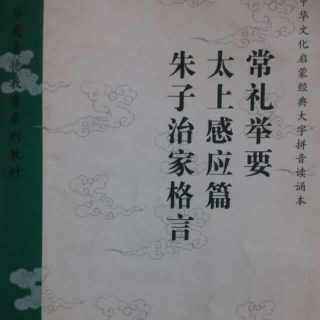 中华文化启蒙经典大字拼音读诵本
常礼举要
太上感应篇
朱子治家格言
系列教材